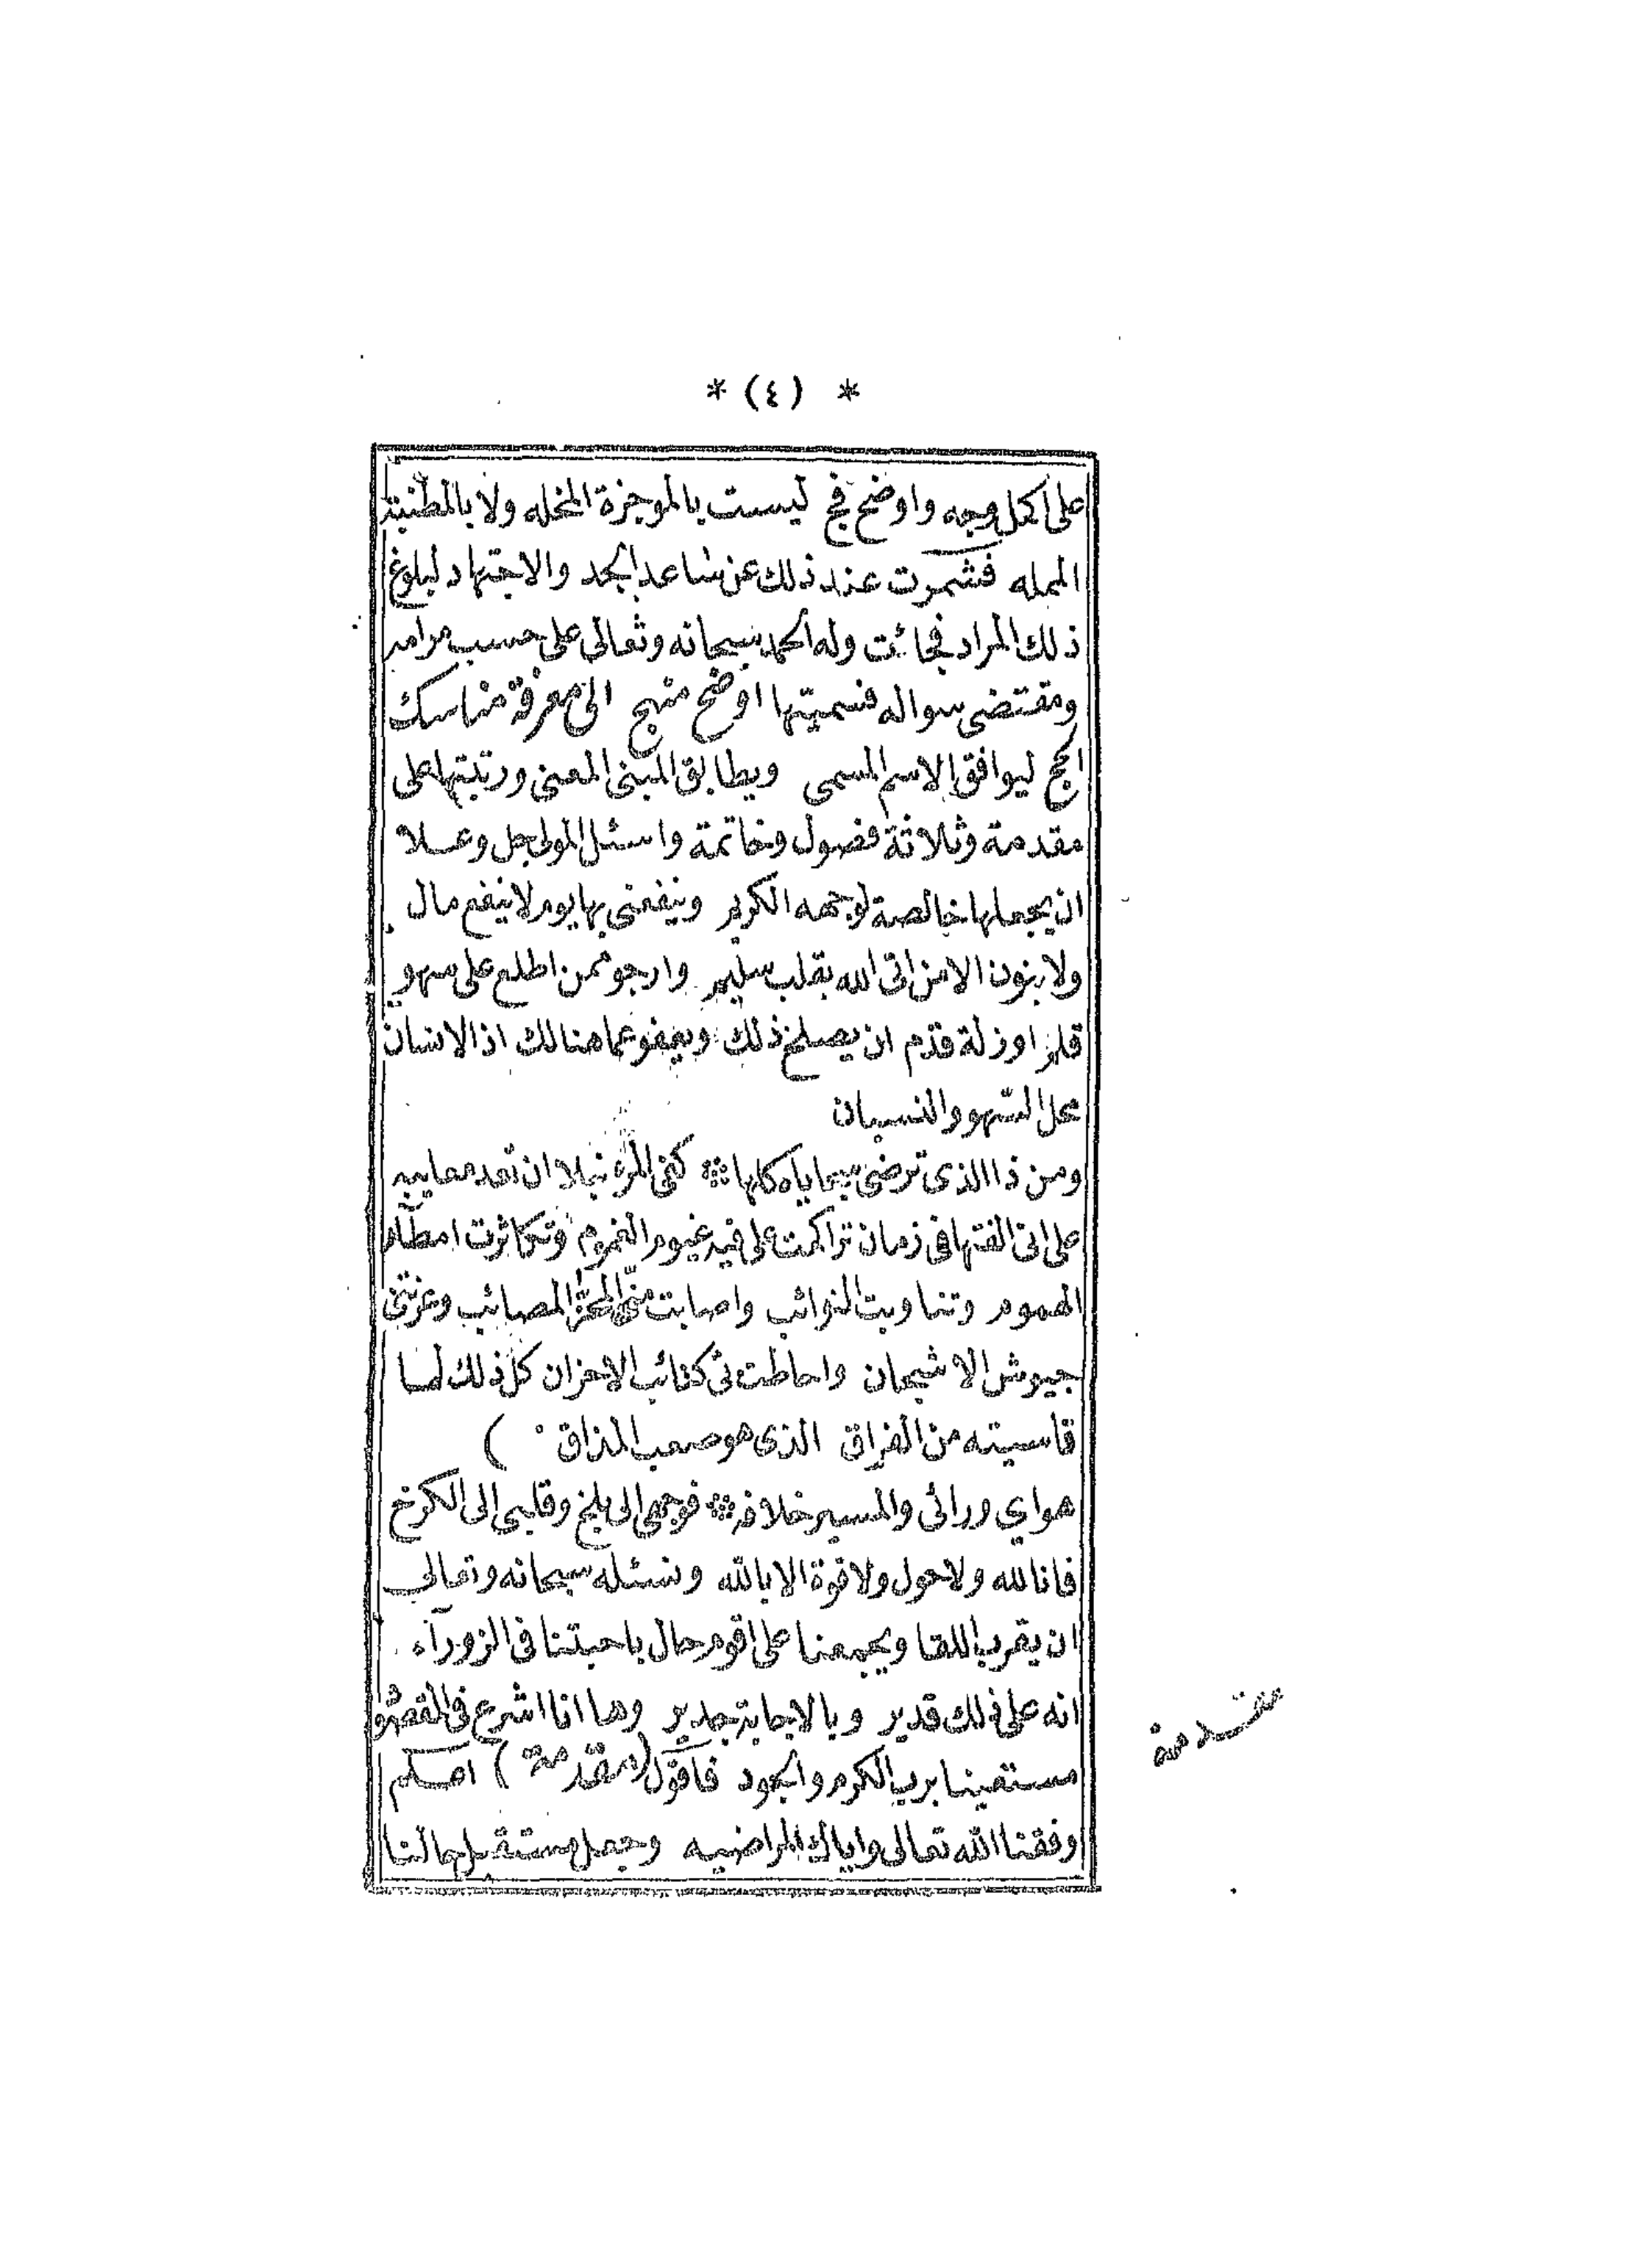 * (٤) *
على اكمل وجه واوضح فج ليست بالموجزة المخله ولا بالمطنبة
المله فشمرت عند ذلك عن ساعد الجد والاجتهاد لبلوغ
ذلك المراد فجائت وله الحمد سبحانه وتعالى على حسب مرامه
ومقتضى سواله فسميتها اوضح منهج الى معرفة مناسك
الحج ليوافق الاسم المسمى ويطابق المبنى المعنى ورتبتها على
مقدمة وثلاثة فصول وخاتمة واسئل المولى جل وعلا
ان يجعلها خالصة لوجهه الكريم وينفعنى بها يوم لا ينفع مال
ولا بنون الا من اتى الله بقلب سليم وارجو ممن اطلع على سهو
قلم او زلة قدم ان يصلح ذلك ويعفو عما هنالك اذ الانسان
محل السهو والنسيان
ومن ذا الذى ترضى سجاياه كلها ؞ كفى المرء نبلا ان تعد معايبه
على انى الفتها فى زمان تراكمت على فيه غيوم الغموم وتكاثرت امطار
الهموم وتناوبت النوائب واصابت منى المحز المصائب وغزتنى
جيوش الاشجان واحاطت بى كتائب الاحزان كل ذلك لما
قاسيته من الفراق الذى هو صعب المذاق )
هواي ورائى والمسير خلافه ؞ فوجهى الى بلخ وقلبى الى الكرخ
فانا لله ولا حول ولا قوة الا بالله ونسئله سبحانه وتعالى
ان يقرب اللقا ويجمعنا على اقوم حال باحبتنا فى الزورآء
انه على ذلك قدير وبالاجابة جدير وها انا اشرع فى المقصود
مستعينا برب الكرم والجود فاقول (مقدمة) اعلم
وفقنا الله تعالى واياك لمراضيه وجعل مستقبل حالنا
مقدمة